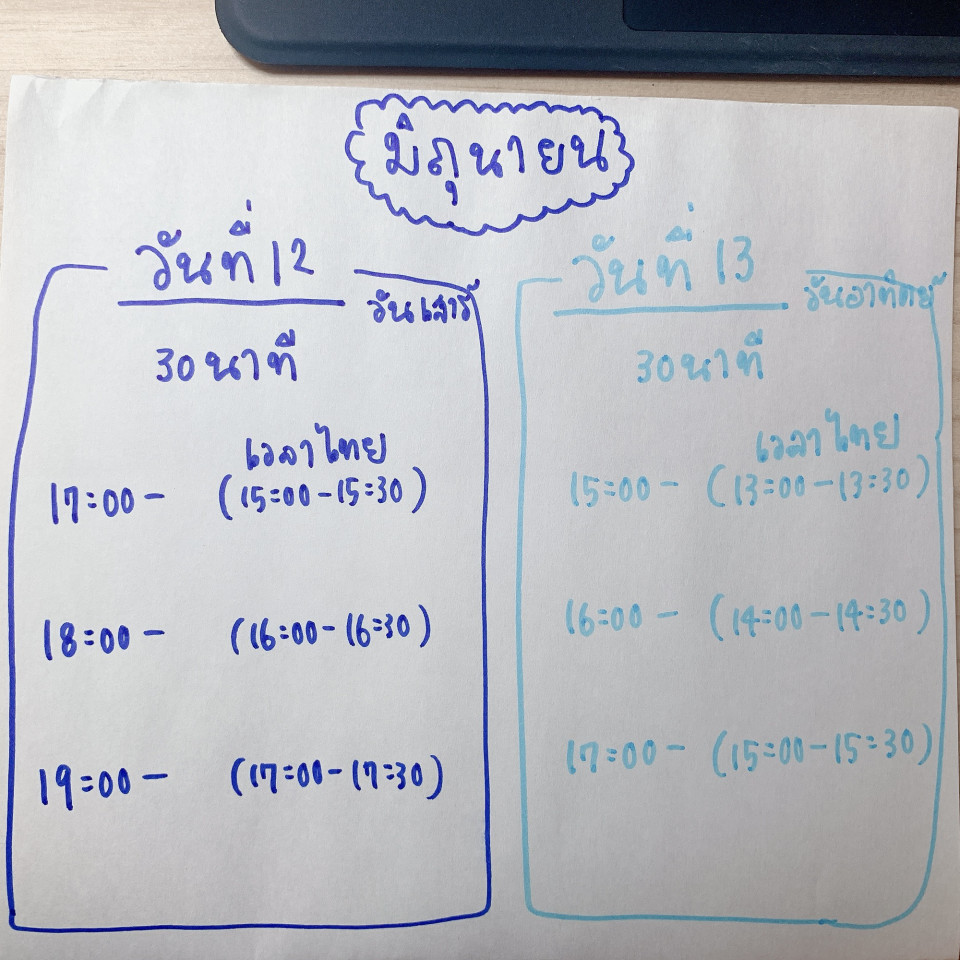 มิถุนายน
วันที่ 12
วันเสาร์
30 นาที
เวลาไทย
17:00 - (15:00 - 15:30)
18:00 - (16:00 - 16:30)
19:00 - (17:00 - 17:30)
วันที่ 13
วันอาทิตย์
30 นาที
เวลาไทย
15:00 - (13:00 - 13:30)
16:00 - (14:00 - 14:30)
17:00 - (15:00 - 15:30)